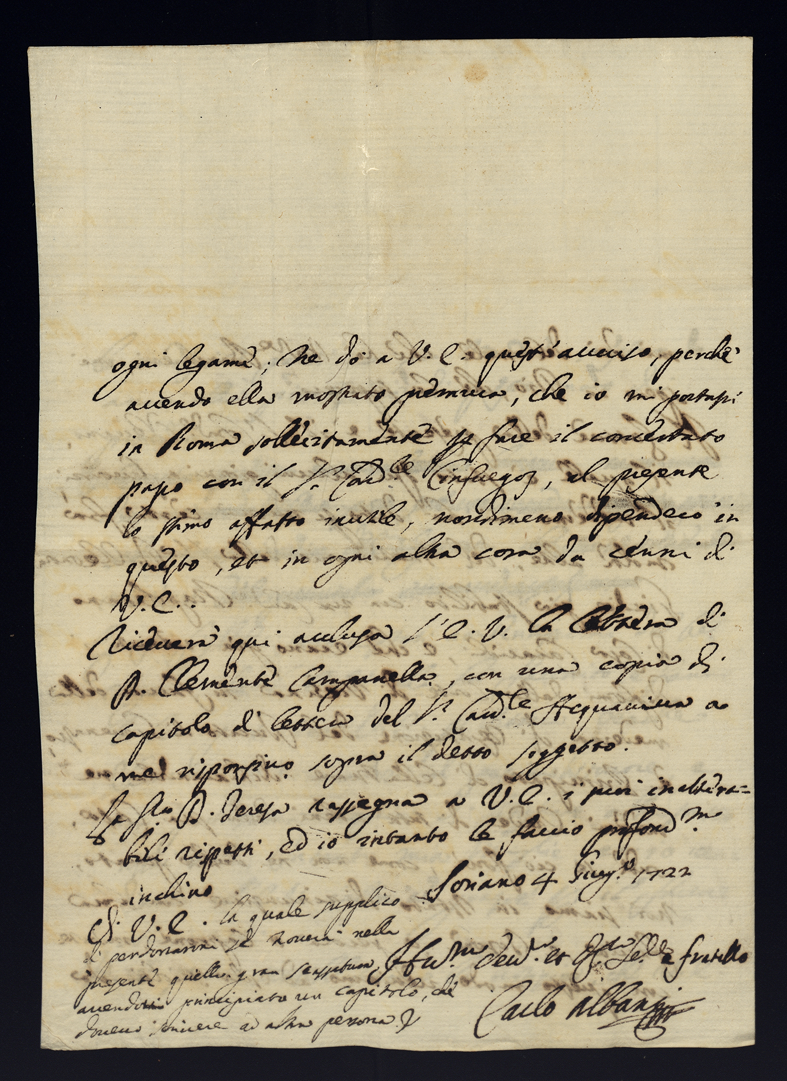 ogni legame; ne dò a V. E. quest'avviso, perchè
avendo ella mostrato premura, che io mi portassi
in Roma sollecitamente p fare il concertato
passo con il S.r Card.le Cinfuegos, al presente
lo stimo affatto inutile, nondimeno dipenderò in
questo, et in ogni altra cosa da cenni di
V. E..
Riceverà qui acclusa l'E. V. la lettera di
D. Clemente Campanella, con una copia di
capitolo di lettera del S.r Card.le Acquaviva a
me risponsivo sopra il detto soggetto.
La Sig.ra D. Teresa rassegna a V. E. i suoi inaltera=
bili rispetti, ed io intanto le faccio profond.m
inchino
Soriano 4 Giug.o 1722
Di V. E. la quale supplico
di perdonarmi se troverà nella
presente quella gran scassatura,
avendo principiato un capitolo, che
dovevo scrivere ad altra persona
dev.mo et fratello
Carlo Albani